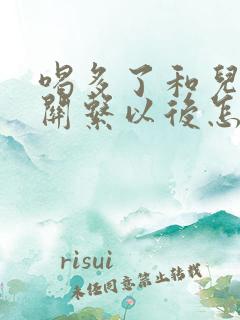 喝多了和兒
關繫以後怎
risui
未经同意禁止转载